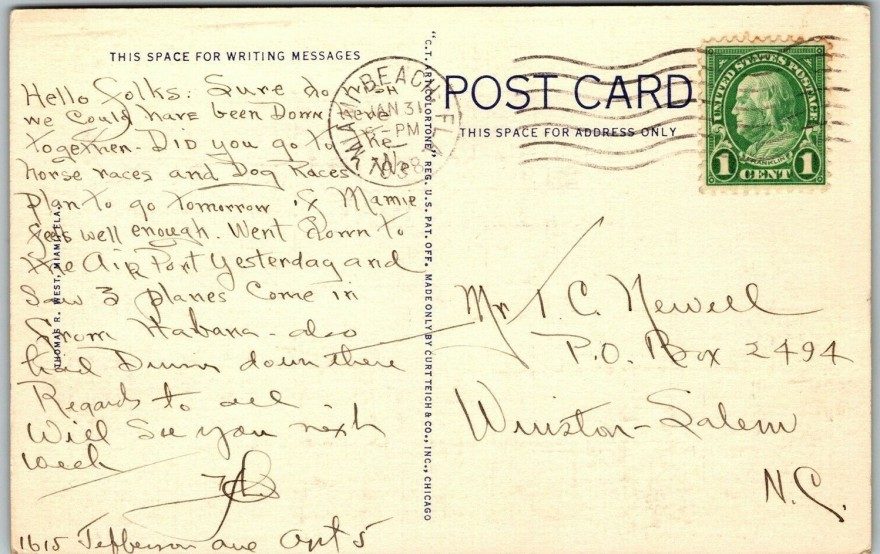 THIS SPACE FOR WRITING MESSAGES
Hello Folks: Sure do wish
we Could have been Down here
together - DID you go to the
horse races and Dog Races We
plan to go tomorrow if Mamie
feels well enough. Went down to
the Air Port yesterday and
Saw 3 planes Come in
from Habana - also
had Dinner down there
Regards to all
Will See you next
week
1615 Jefferson ave Apt 5
THOMAS R. WEST, MIAMI, FLA.
"C.T. ART-COLORTONE" REG. U.S. PAT. OFF. MADE ONLY BY CURT TEICH & CO., INC., CHICAGO
MIAMI BEACH, FLA.
JAN 31
PM
1938
POST CARD
THIS SPACE FOR ADDRESS ONLY
UNITED STATES POSTAGE
FRANKLIN
1 CENT 1
Mr. I. C. Newell
P.O. Box 2494
Winston-Salem
N.C.